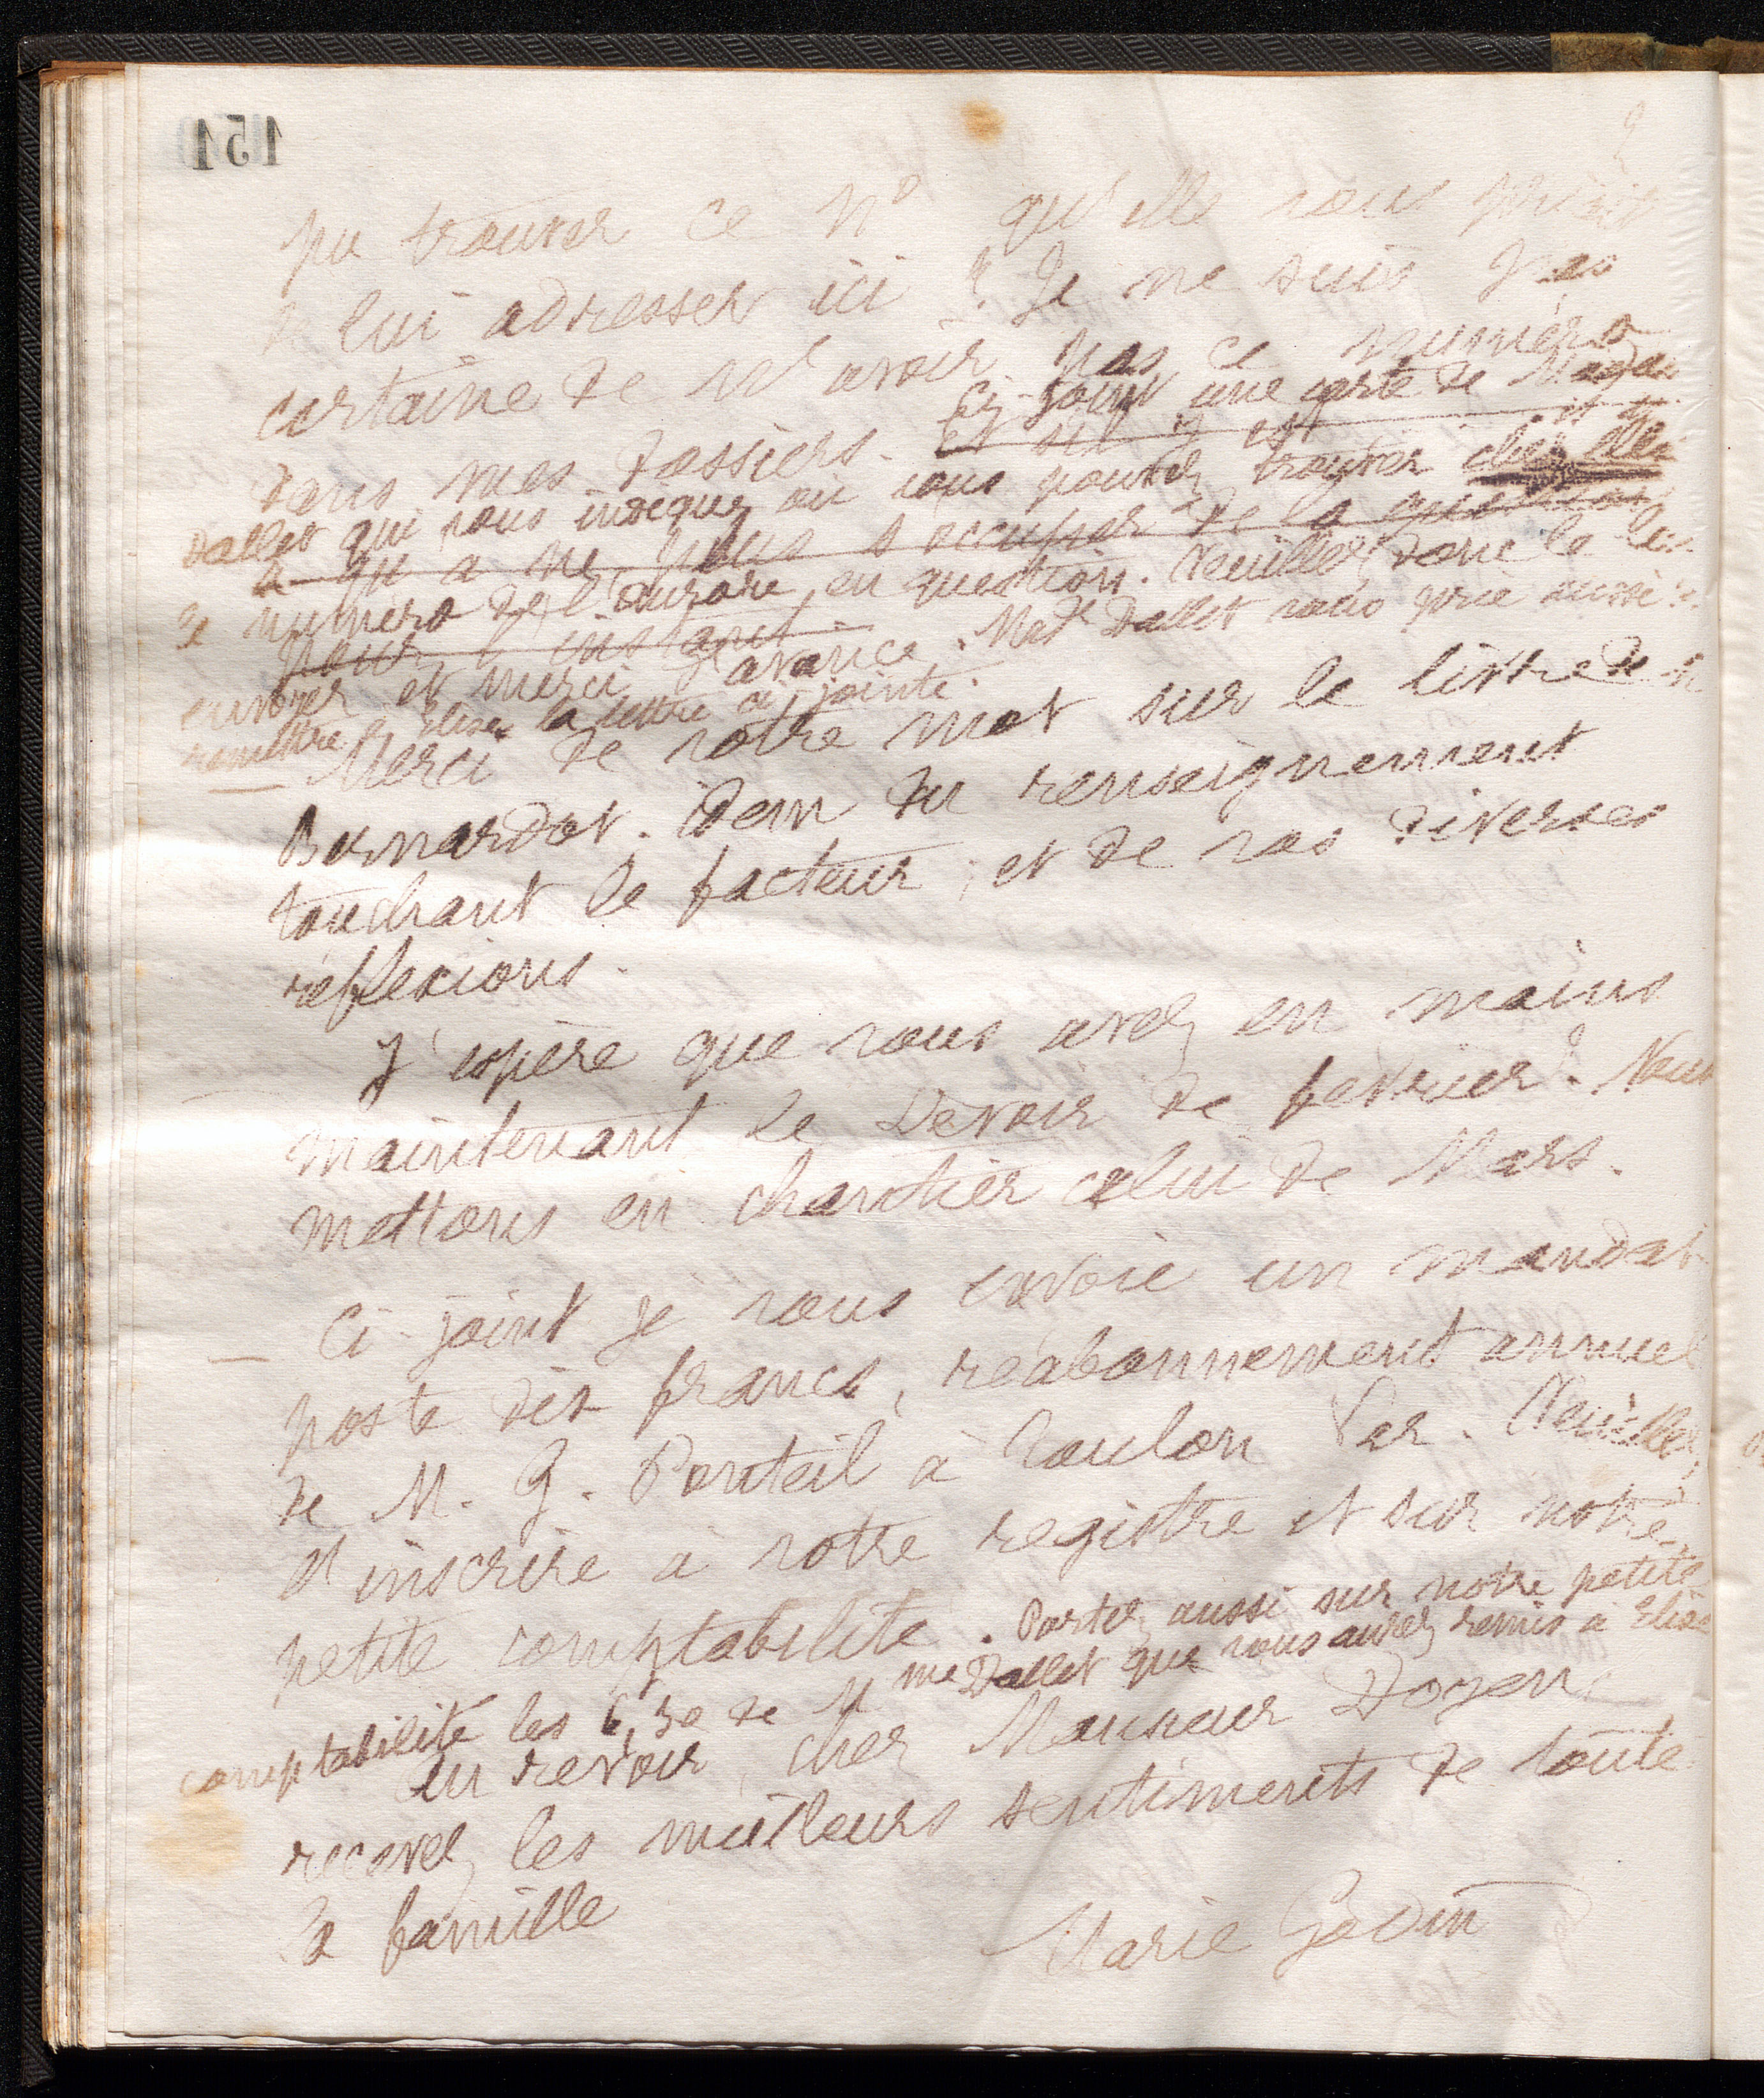 151
2
pu trouver ce No qu'elle vous priait
de lui adresser ici ? Je ne suis pas
certaine de n'avoir pas ce numéro
dans mes dossiers. Ci-joint une carte de Madame
et s'il y est
Dallet qui vous indique où vous pouvez trouver chez elle
a qu'a ne plus s'occuper de la question
le numéro de l'Aurore en question. Veuillez donc le lui
pour l'instant
envoyer et merci d'avance. Made Dallet vous prie aussi de
remettre à Elise la lettre ci-jointe.
— Merci de votre mot sur le livre de M
Bernardot. idem du renseignement
touchant le facteur, et de vos diverses
réflexions.
J'espère que vous avez en mains
maintenant le Devoir de février ? Nous
mettons en chantier celui de Mars.
— Ci-joint je vous envoie un mandat
poste dix francs, réabonnement annuel
de M. G. Ponteil à Toulon Var. Veuillez
l'inscrire à votre registre et sur notre
petite comptabilité. Portez aussi sur notre petite
comptabilité les 6,30 de Mme Dallet que vous aurez remis à Elise
au revoir, cher Monsieur Doyen,
recevez les meilleurs sentiments de toute
la famille
Marie Godin